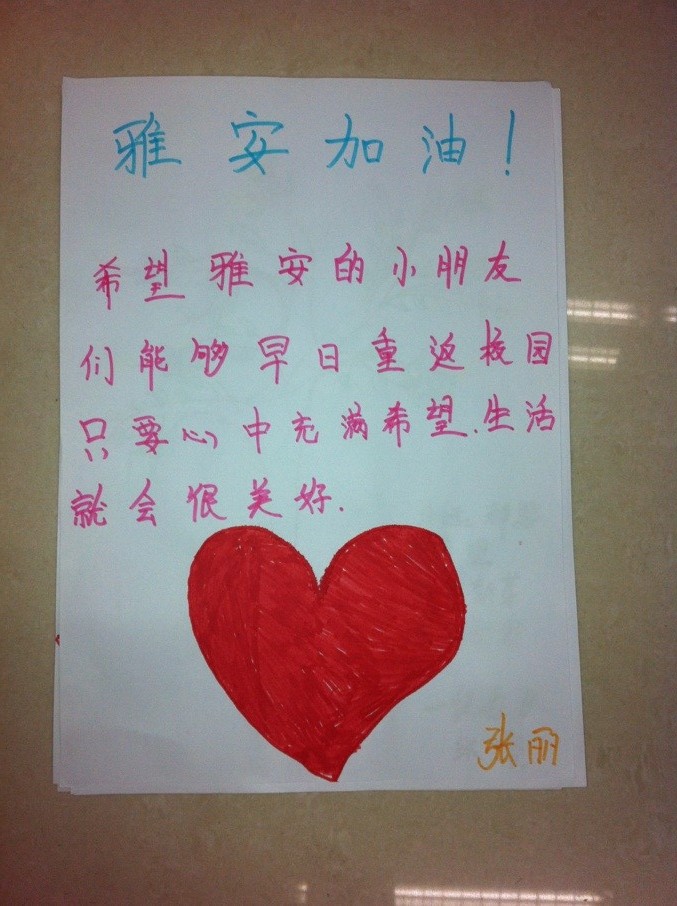 雅安加油!
希望雅安的小朋友
们能够早日重返校园
只要心中充满希望.生活
就会很美好.
张丽